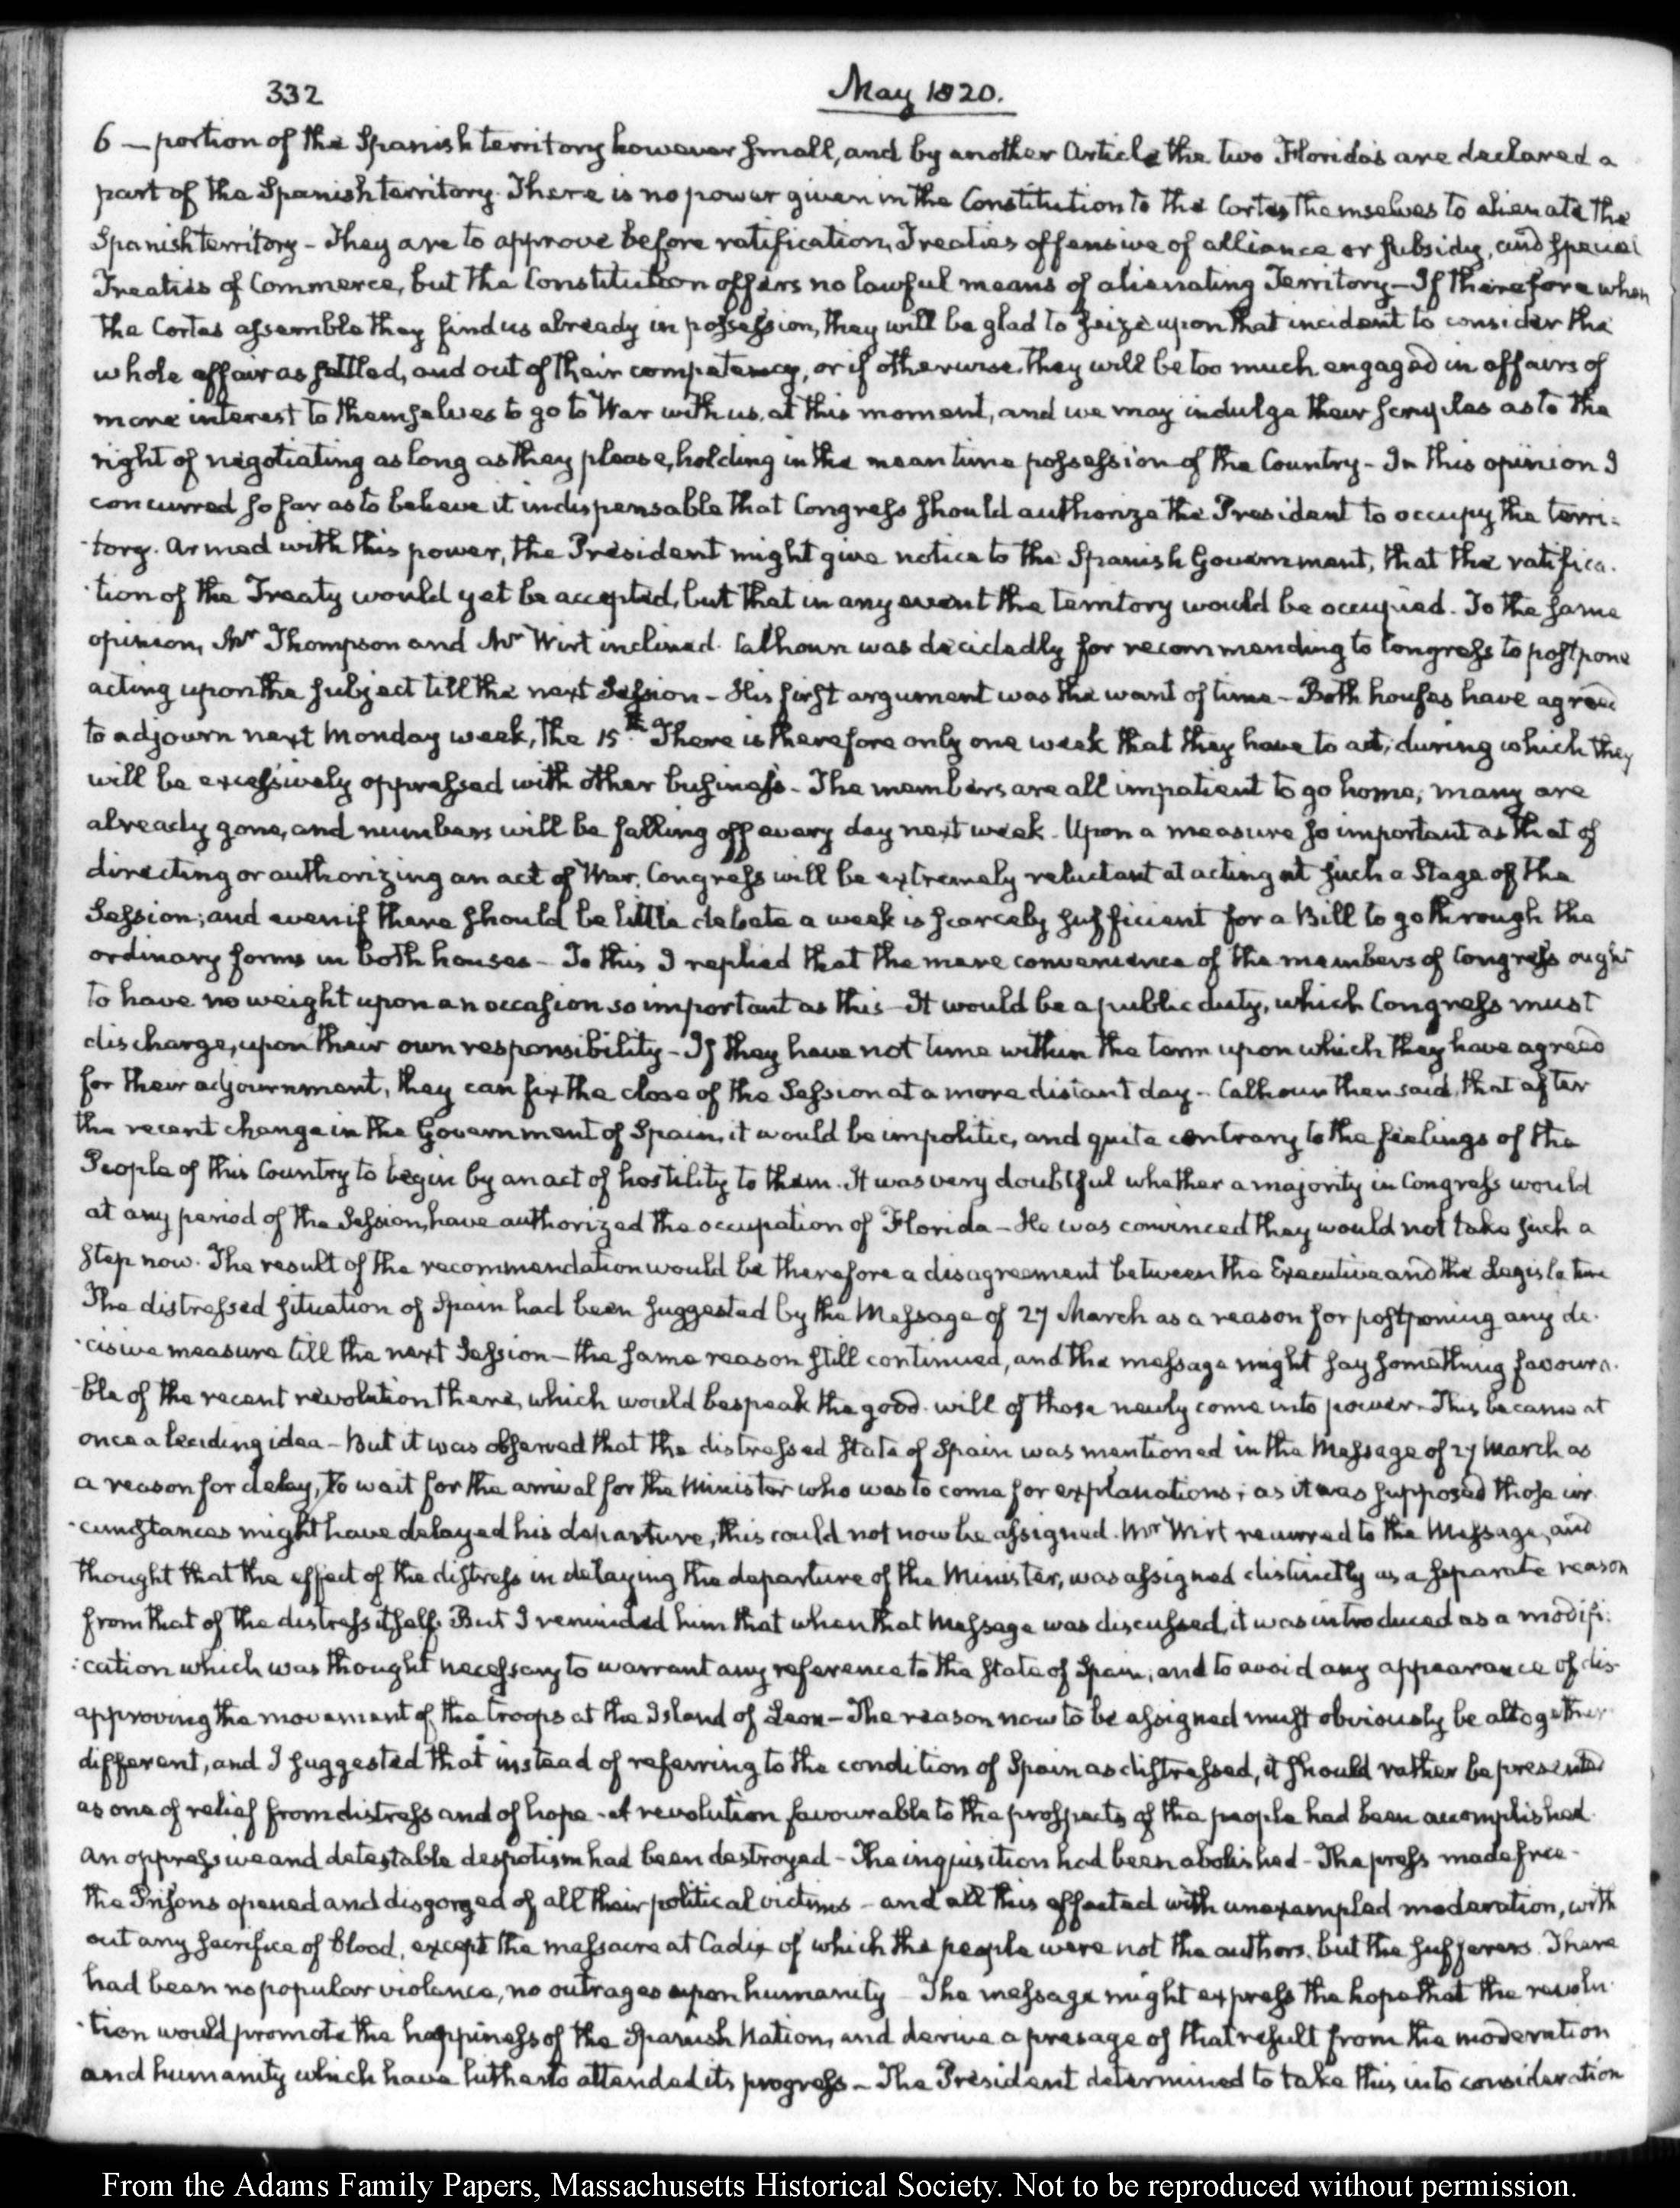 332
May 1820.
6 — portion of the Spanish territory however small, and by another Article the two Florida's are declared a
part of the Spanish territory. There is no power given in the Constitution to the Cortes themselves to alienate the
Spanish territory - They are to approve before ratification, Treaties offensive of alliance or subsidy, and special
Treaties of Commerce, but the Constitution offers no lawful means of alienating Territory - If therefore when
the Cortes assemble they find us already in possession, they will be glad to seize upon that incident to consider the
whole affair as settled, and out of their competency, or if otherwise, they will be too much engaged in affairs of
more interest to themselves to go to War with us, at this moment, and we may indulge their scruples as to the
right of negotiating as long as they please, holding in the mean time possession of the Country - In this opinion I
concurred so far as to believe it indispensable that Congress should authorize the President to occupy the terri-
-tory. Armed with this power, the President might give notice to the Spanish Government, that the ratifica-
-tion of the Treaty would yet be accepted, but that in any event the territory would be occupied. To the same
opinion, Mr Thompson and Mr Wirt inclined. Calhoun was decidedly for recommending to Congress to postpone
acting upon the subject till the next Session - His first argument was the want of time - Both houses have agreed
to adjourn next Monday week, the 15th. There is therefore only one week that they have to act, during which they
will be excessively oppressed with other business - The members are all impatient to go home; many are
already gone, and numbers will be falling off every day next week - Upon a measure so important as that of
directing or authorizing an act of War, Congress will be extremely reluctant at acting at such a Stage of the
Session; and even if there should be little debate a week is scarcely sufficient for a Bill to go through the
ordinary forms in both houses - To this I replied that the mere convenience of the members of Congress ought
to have no weight upon an occasion so important as this - It would be a public duty, which Congress must
discharge, upon their own responsibility - If they have not time within the term upon which they have agreed
for their adjournment, they can fix the close of the Session at a more distant day - Calhoun then said, that after
the recent change in the Government of Spain, it would be impolitic, and quite contrary to the feelings of the
People of this Country to begin by an act of hostility to them. It was very doubtful whether a majority in Congress would
at any period of the Session, have authorized the occupation of Florida - He was convinced they would not take such a
step now. The result of the recommendation would be therefore a disagreement between the Executive and the Legislature
The distressed situation of Spain had been suggested by the Message of 27 March as a reason for postponing any de-
-cisive measure till the next Session - the same reason still continued, and the message might say something favoura-
-ble of the recent revolution there, which would bespeak the good-will of those newly come into power - This became at
once a leading idea - But it was observed that the distressed State of Spain was mentioned in the Message of 27 March as
a reason for delay, to wait for the arrival for the Minister who was to come for explanations; as it was supposed those cir-
-cumstances might have delayed his departure, this could not now be assigned. Mr Wirt recurred to the Message, and
thought that the effect of the distress in delaying the departure of the Minister, was assigned distinctly as a separate reason
from that of the distress itself. But I reminded him that when that Message was discussed, it was introduced as a modifi-
-cation which was thought necessary to warrant any reference to the State of Spain, and to avoid any appearance of dis-
approving the movement of the troops at the Island of Leon - The reason now to be assigned must obviously be altogether
different, and I suggested that instead of referring to the condition of Spain as distressed, it should rather be presented
as one of relief from distress and of hope - A revolution favourable to the prospects of the people had been accomplished.
An oppressive and detestable despotism had been destroyed - The inquisition had been abolished - The press made free -
the Prisons opened and disgorged of all their political victims - and all this effected with unexampled moderation, with
out any sacrifice of blood, except the massacre at Cadix of which the people were not the authors, but the sufferers. There
had been no popular violence, no outrages upon humanity - The message might express the hope that the revolu-
-tion would promote the happiness of the Spanish Nation, and derive a presage of that result from the moderation
and humanity which have hitherto attended its progress - The President determined to take this into consideration
From the Adams Family Papers, Massachusetts Historical Society. Not to be reproduced without permission.